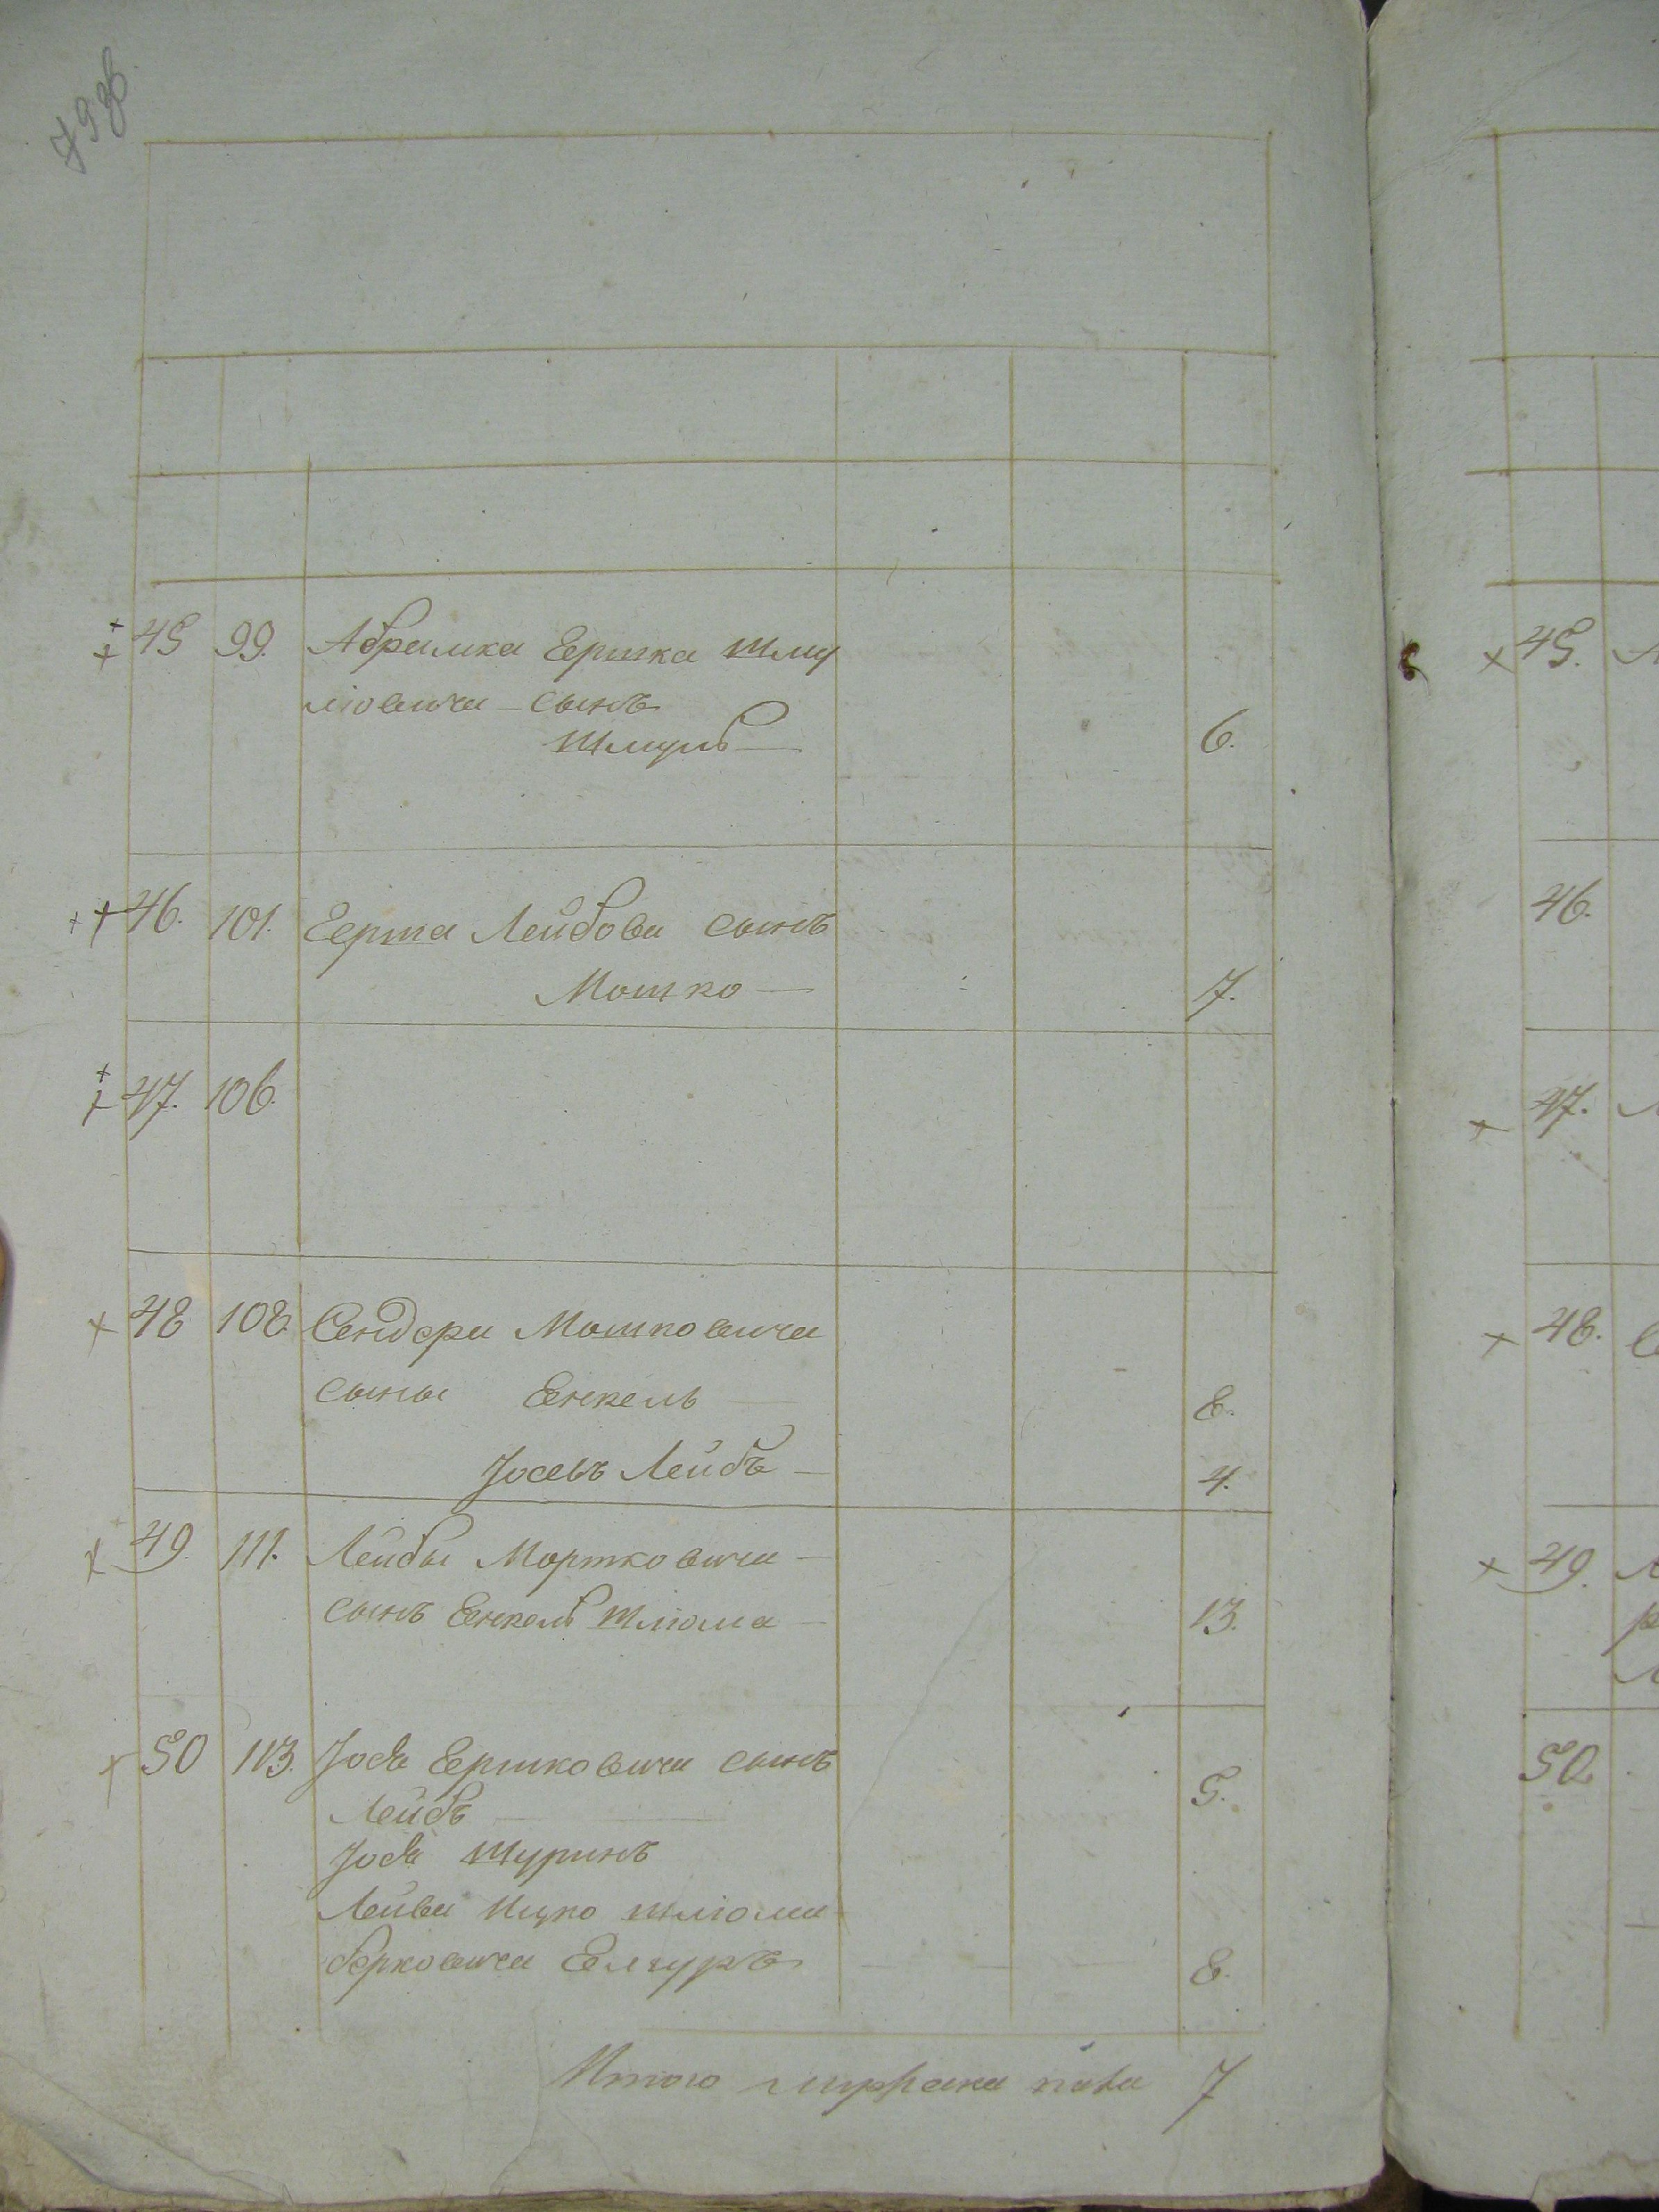 79об.
45 99. Абрамка Ершка Шму
ліовича сынъ
Шмуль 6.
46. 101. Ерша Лейбова сынъ
Мошко 7.
47. 106.
48 108. Сендера Мошковича
сыны Енкель 8.
Іосевъ Лейбъ 4.
49 111. Лейбы Мортковича
сынъ Енкель Шліома 13.
50 113. Іося Ершковича сынъ
Лейбъ 5.
Іося Шуринъ
Лейви Ицко Шліома
Берковича 8.
Итого мужеска пола 7
45.
46.
47.
48.
49.
50.